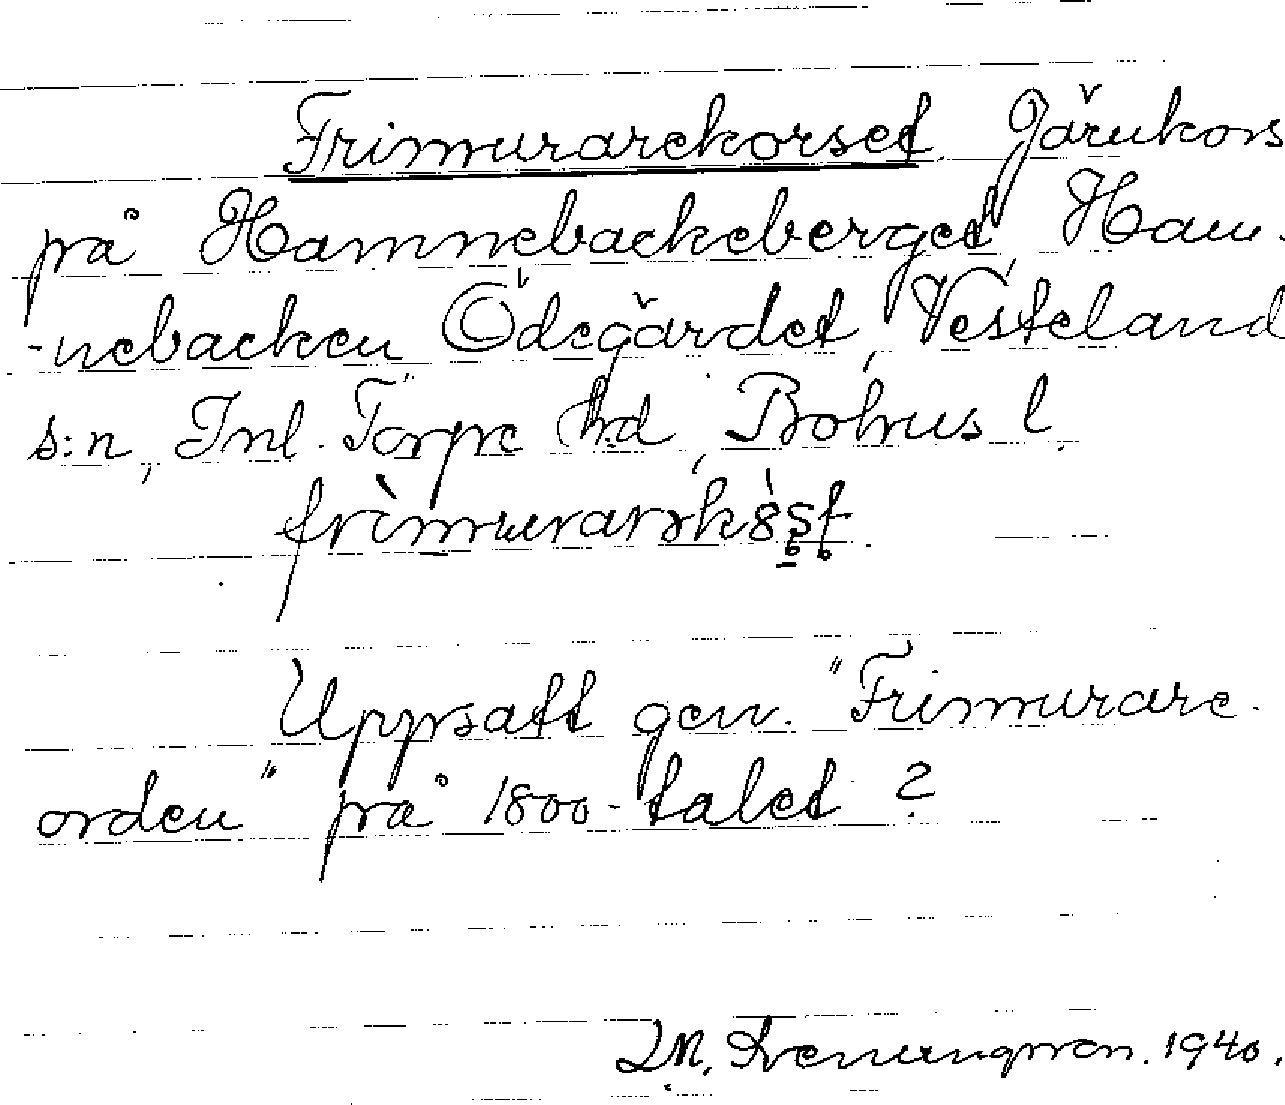 Frimurarekorset. Järnkors
på Hamnebackeberget, Ham-
-nebacken Ödegärdet, Vesteland
s:n, Inl. Torpe hd, Bohus l.
Uppsatt gen. "Frimurare-
orden" på 1800-talet?
1940.